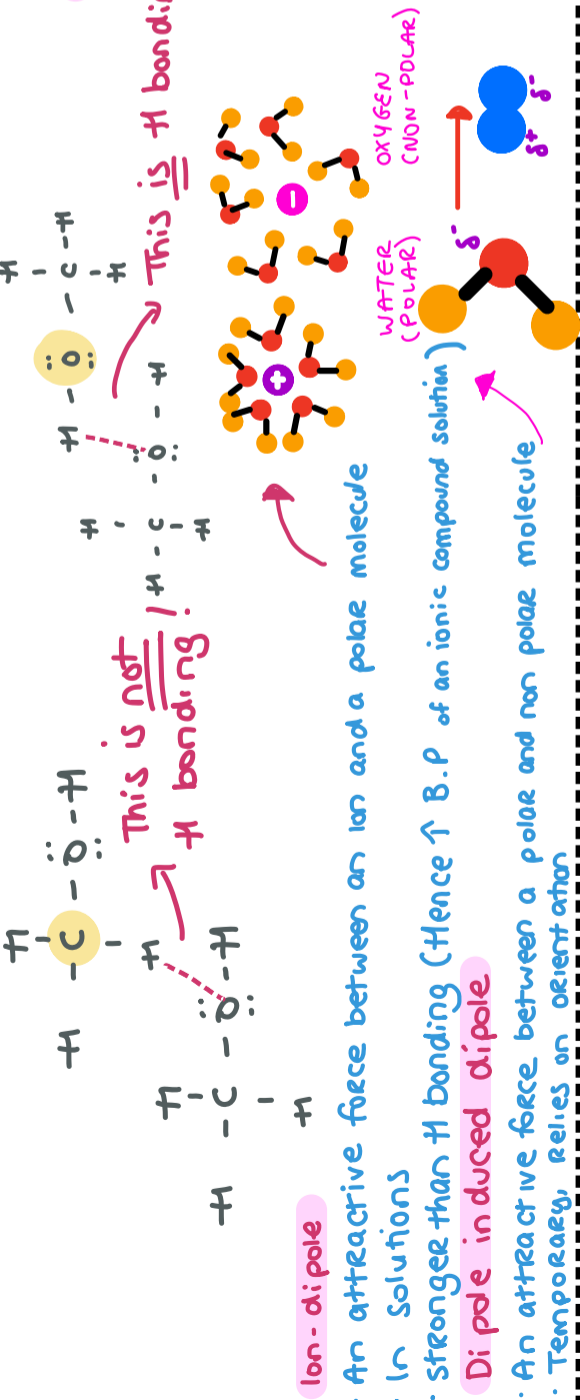 H
H - C - :O: - H
H
H
H - C - :O: - H
H
This is not
H bonding!
H
H - :O: - C - H
H
H
H - C - :O: - H
H
This is H bondi
Ion-dipole
· An attractive force between an Ion and a polar molecule
In solutions
· Stronger than H bonding (Hence ↑ B.P of an ionic compound solution)
+
−
Dipole induced dipole
· An attractive force between a polar and non polar molecule
· Temporary, Relies on orientation
WATER
(POLAR)
OXYGEN
(NON-POLAR)
δ-
δ+
δ-